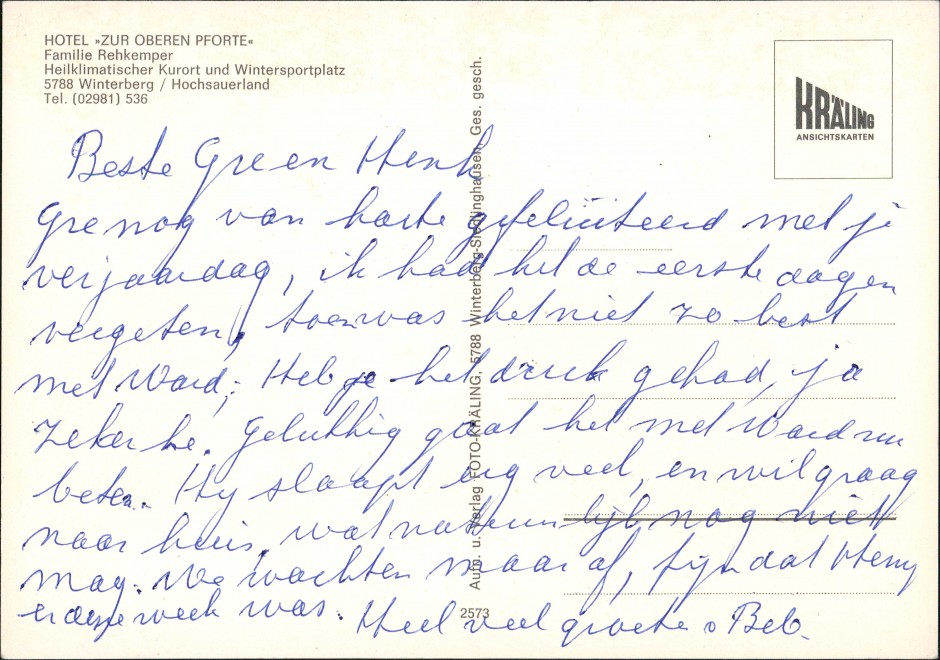 HOTEL »ZUR OBEREN PFORTE«
Familie Rehkemper
Heilklimatischer Kurort und Wintersportplatz
5788 Winterberg / Hochsauerland
Tel. (02981) 536
KRÄLING
ANSICHTSKARTEN
Beste Gre en Henk
Gre nog van harte gefeliciteerd met je
verjaardag, ik had het de eerste dagen
vergeten, toen was het niet zo best
met Ward; Heb je het druk gehad, ja
zeker he. Gelukkig gaat het met Ward nu
beter. Hy slaapt erg veel, en wil graag
naar huis, wat natuurlijk nog niet
mag. We wachten maar af, fijn dat Henny
er deze week was. Heel veel groeten Beb.
Aufn. u. Verlag FOTO-KRÄLING, 5788 Winterberg-Siedlinghausen. Ges. gesch.
2573